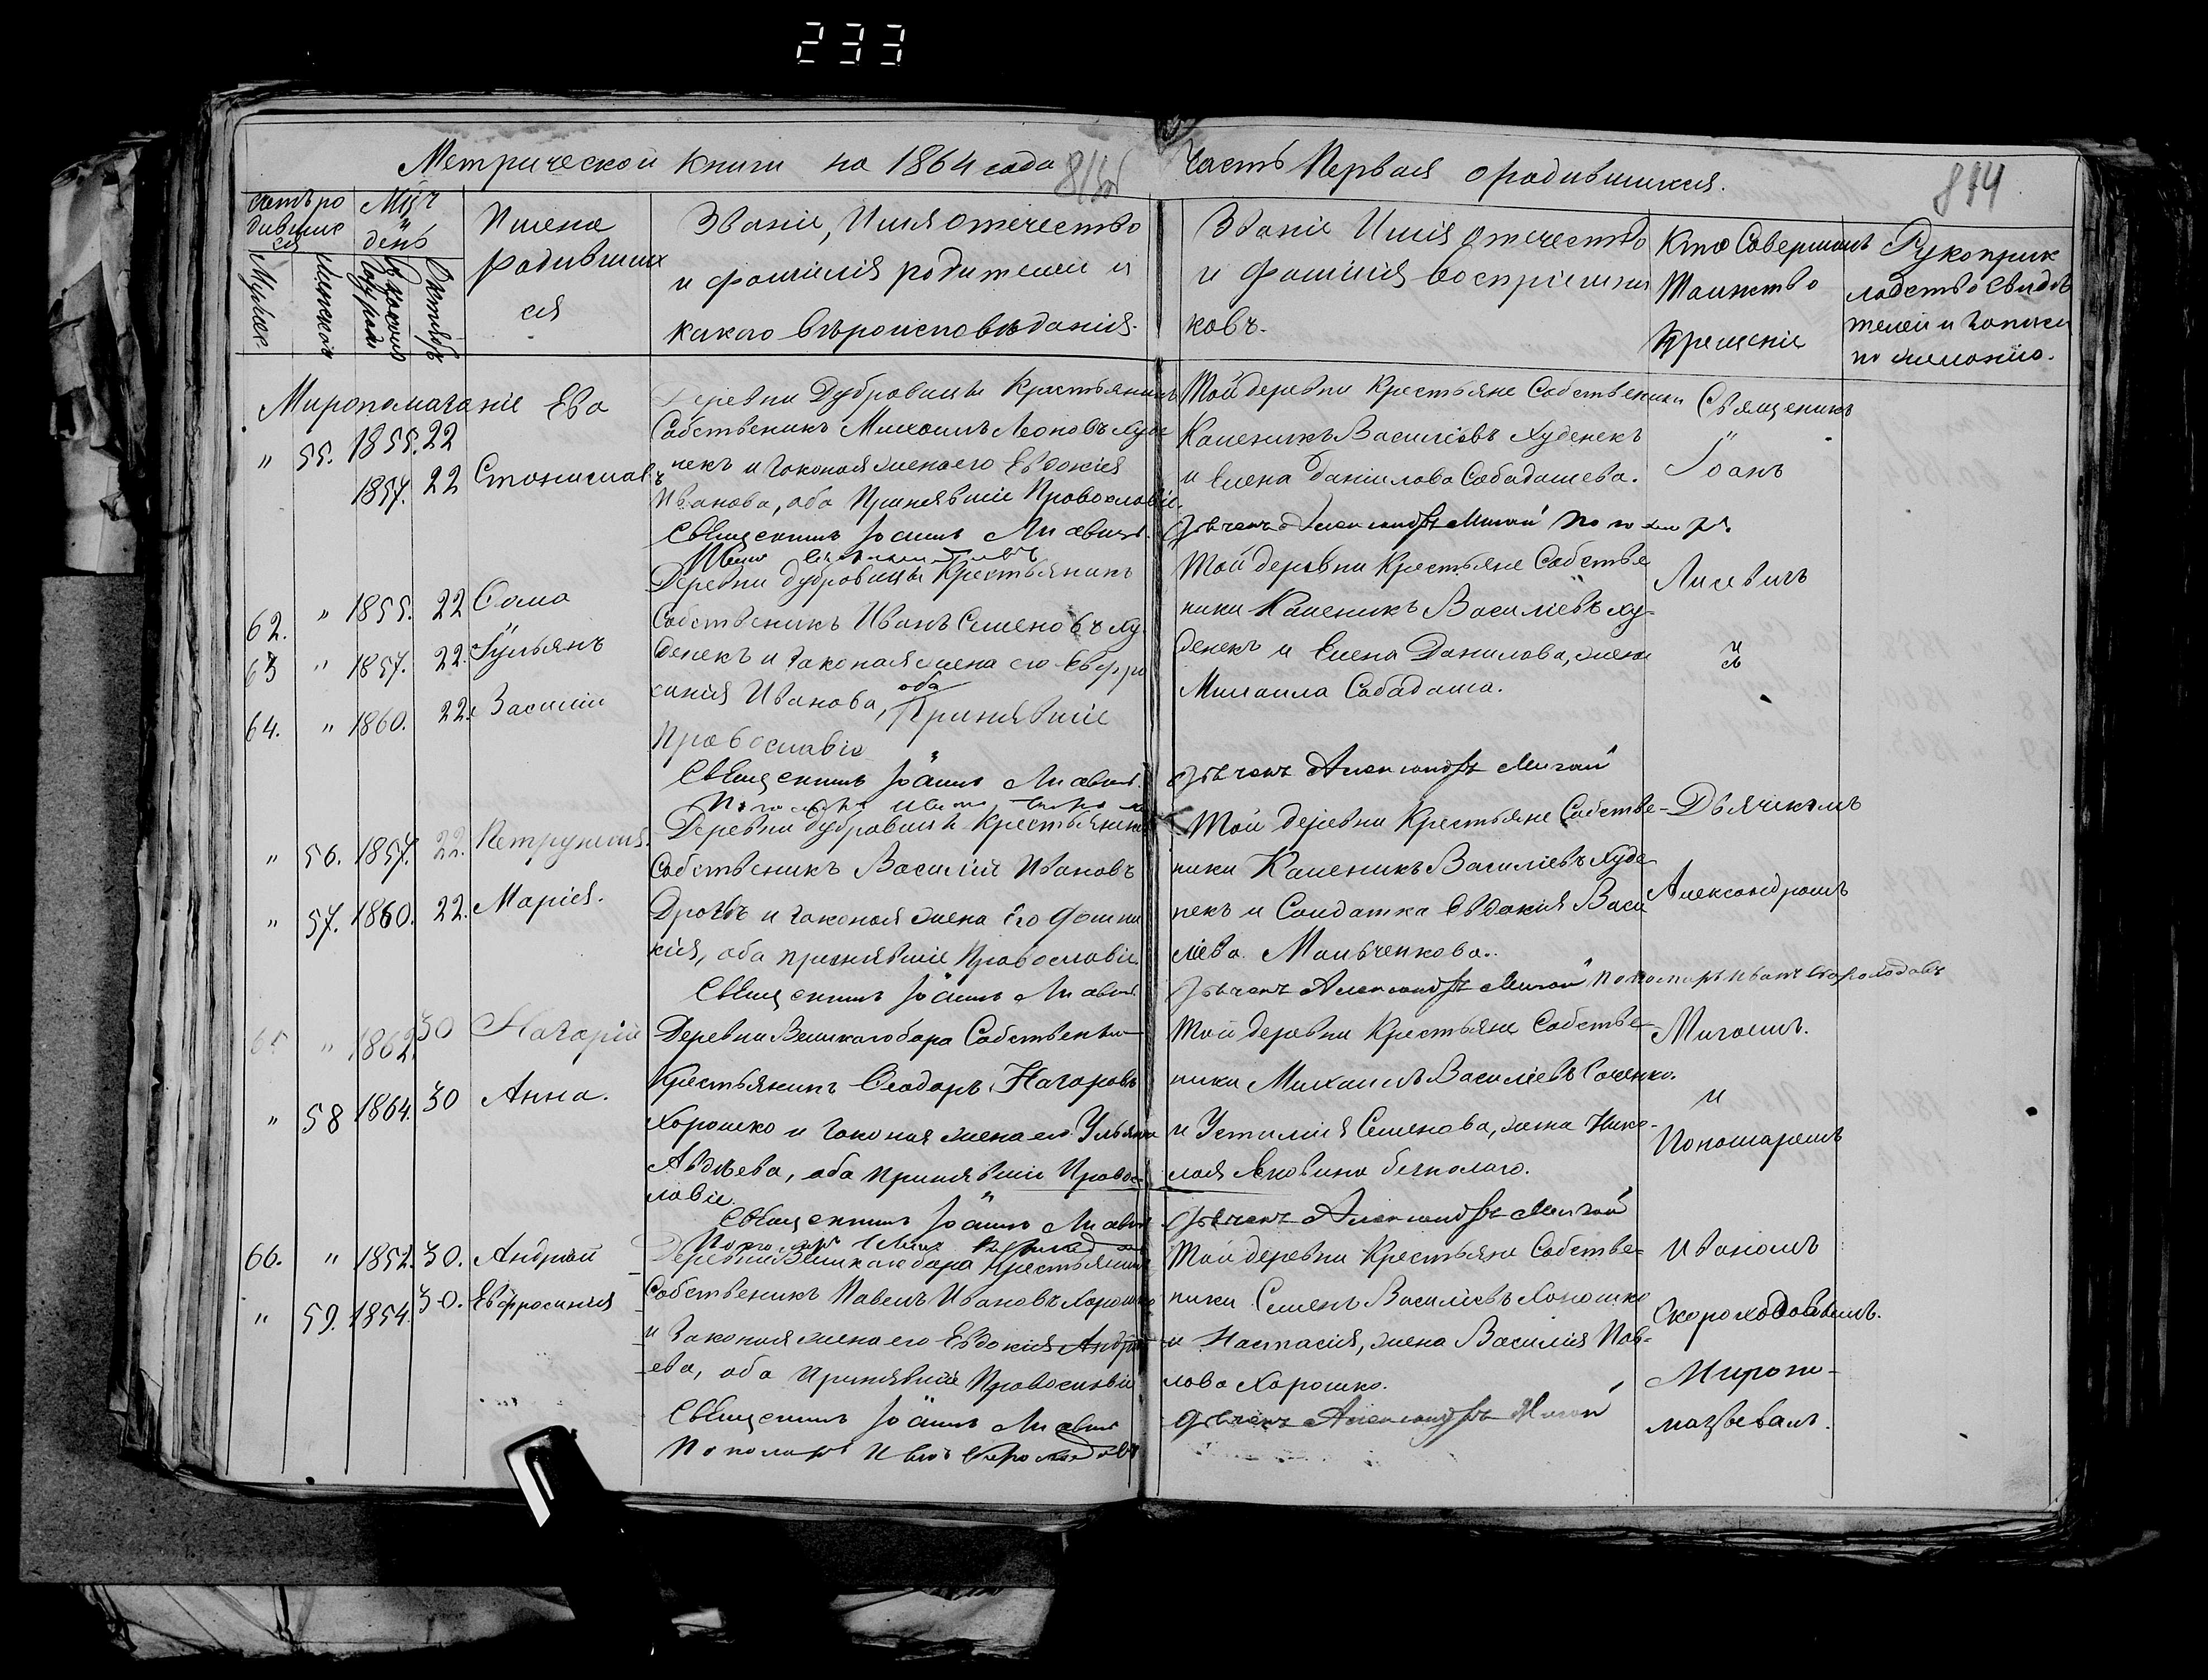 233
Метрической книги на 1864 года
Часть Первая о родившихся.
814
счетъ ро
дившие
ся
Мужес.
Женской
Мѣсч
и
день
Октябрь
Имена
родивших
ся
Званіе, Имя отечество
и фамилія родителей и
какого вѣроисповѣданія.
Званіе Имя отечество
и фамилія воспріемни
ковъ.
Кто Совершалъ
Таинство
крещеніе
Рукоприк
ладство свидѣ
телей и записи
по желанію.
Миропомазаніе Ева
" 55. 1855. 22
1857. 22 Станиславъ
Деревни Дубровицы Крестьянинъ
Собственикъ Михаилъ Леоновъ Худе
некъ и законая жена его Евдокія
Иванова, оба Принявшіе Православіе.
Священникъ Іоаннъ Лисевичъ
Той деревни Крестьяне Собственики
Каленикъ Василіевъ Худенекъ
и Елена Даніилова Сабадашева.
Дьячекъ Александръ Мигай
Священикъ
Іоанъ
62. " 1855. 22 Сома
63 " 1857. 22. Іульянъ
64. " 1860. 22. Василій
Деревни дубровицы Крестьянинъ
Собственикъ Иванъ Семеновъ Ху
денекъ и законая жена его Евфро
синія Иванова, оба Принявшіе
Православіе
Священникъ Іоаннъ Лисевичъ
Той деревни Крестьяне Собстве
ники Каленикъ Василіевъ Ху-
денекъ и Елена Данилова, жена
Михаила Сабадаша.
Дьячекъ Александръ Мигай
Лисевичъ
съ
" 56. 1857. 22. Петрунеля.
" 57. 1860. 22. Марія.
Деревни Дубровицы Крестьянинъ
Собственикъ Василій Ивановъ
Дроздъ и законая жена Его Фомин
кія, оба принявшіе Православіе
Священникъ Іоаннъ Лисевичъ
Той деревни Крестьяне Собстве-
ники Каленикъ Василіевъ Худе
некъ и Солдатка Евдокія Васи
ліева Мальченкова.
Дьячекъ Александръ Мигай Пономарь Иванъ Скороходовъ
Дьячкомъ
Александромъ
65 " 1862. 30 Назарій
" 58 1864. 30 Анна.
Деревни Великаго бора Собственикъ
Крестьянинъ Феодоръ Назаровъ
Хорошко и законая жена его Ульяна
Авдѣева, оба принявшіе Правос-
лавіе.
Священникъ Іоаннъ Лисевичъ
Той деревни Крестьяне Собстве-
ники Михаилъ Василіевъ Соченко.
и Устинія Семенова, жена Нико-
лая Яковина безпалаго.
Дьячекъ Александръ Мигай
Мигаемъ.
и
Пономаремъ
66. " 1852. 30. Андрей
" 59. 1854. 30. Евфросинія
Деревни Великаго бора Крестьянинъ
Собственикъ Павелъ Ивановъ Хорошко
и Законая жена его Евдокія Андре
ева, оба Принявшіе Православіе
Священникъ Іоаннъ Лисевичъ
Пономарь Иванъ Скороходовъ
Той деревни Крестьяне Собстве-
ники Семенъ Василіевъ Хорошко
и Настасія, жена Василія Пав-
лова Хорошко.
Дьячекъ Александръ Мигай
Иваномъ
Скороходовымъ.
Миропо-
мазывалъ.